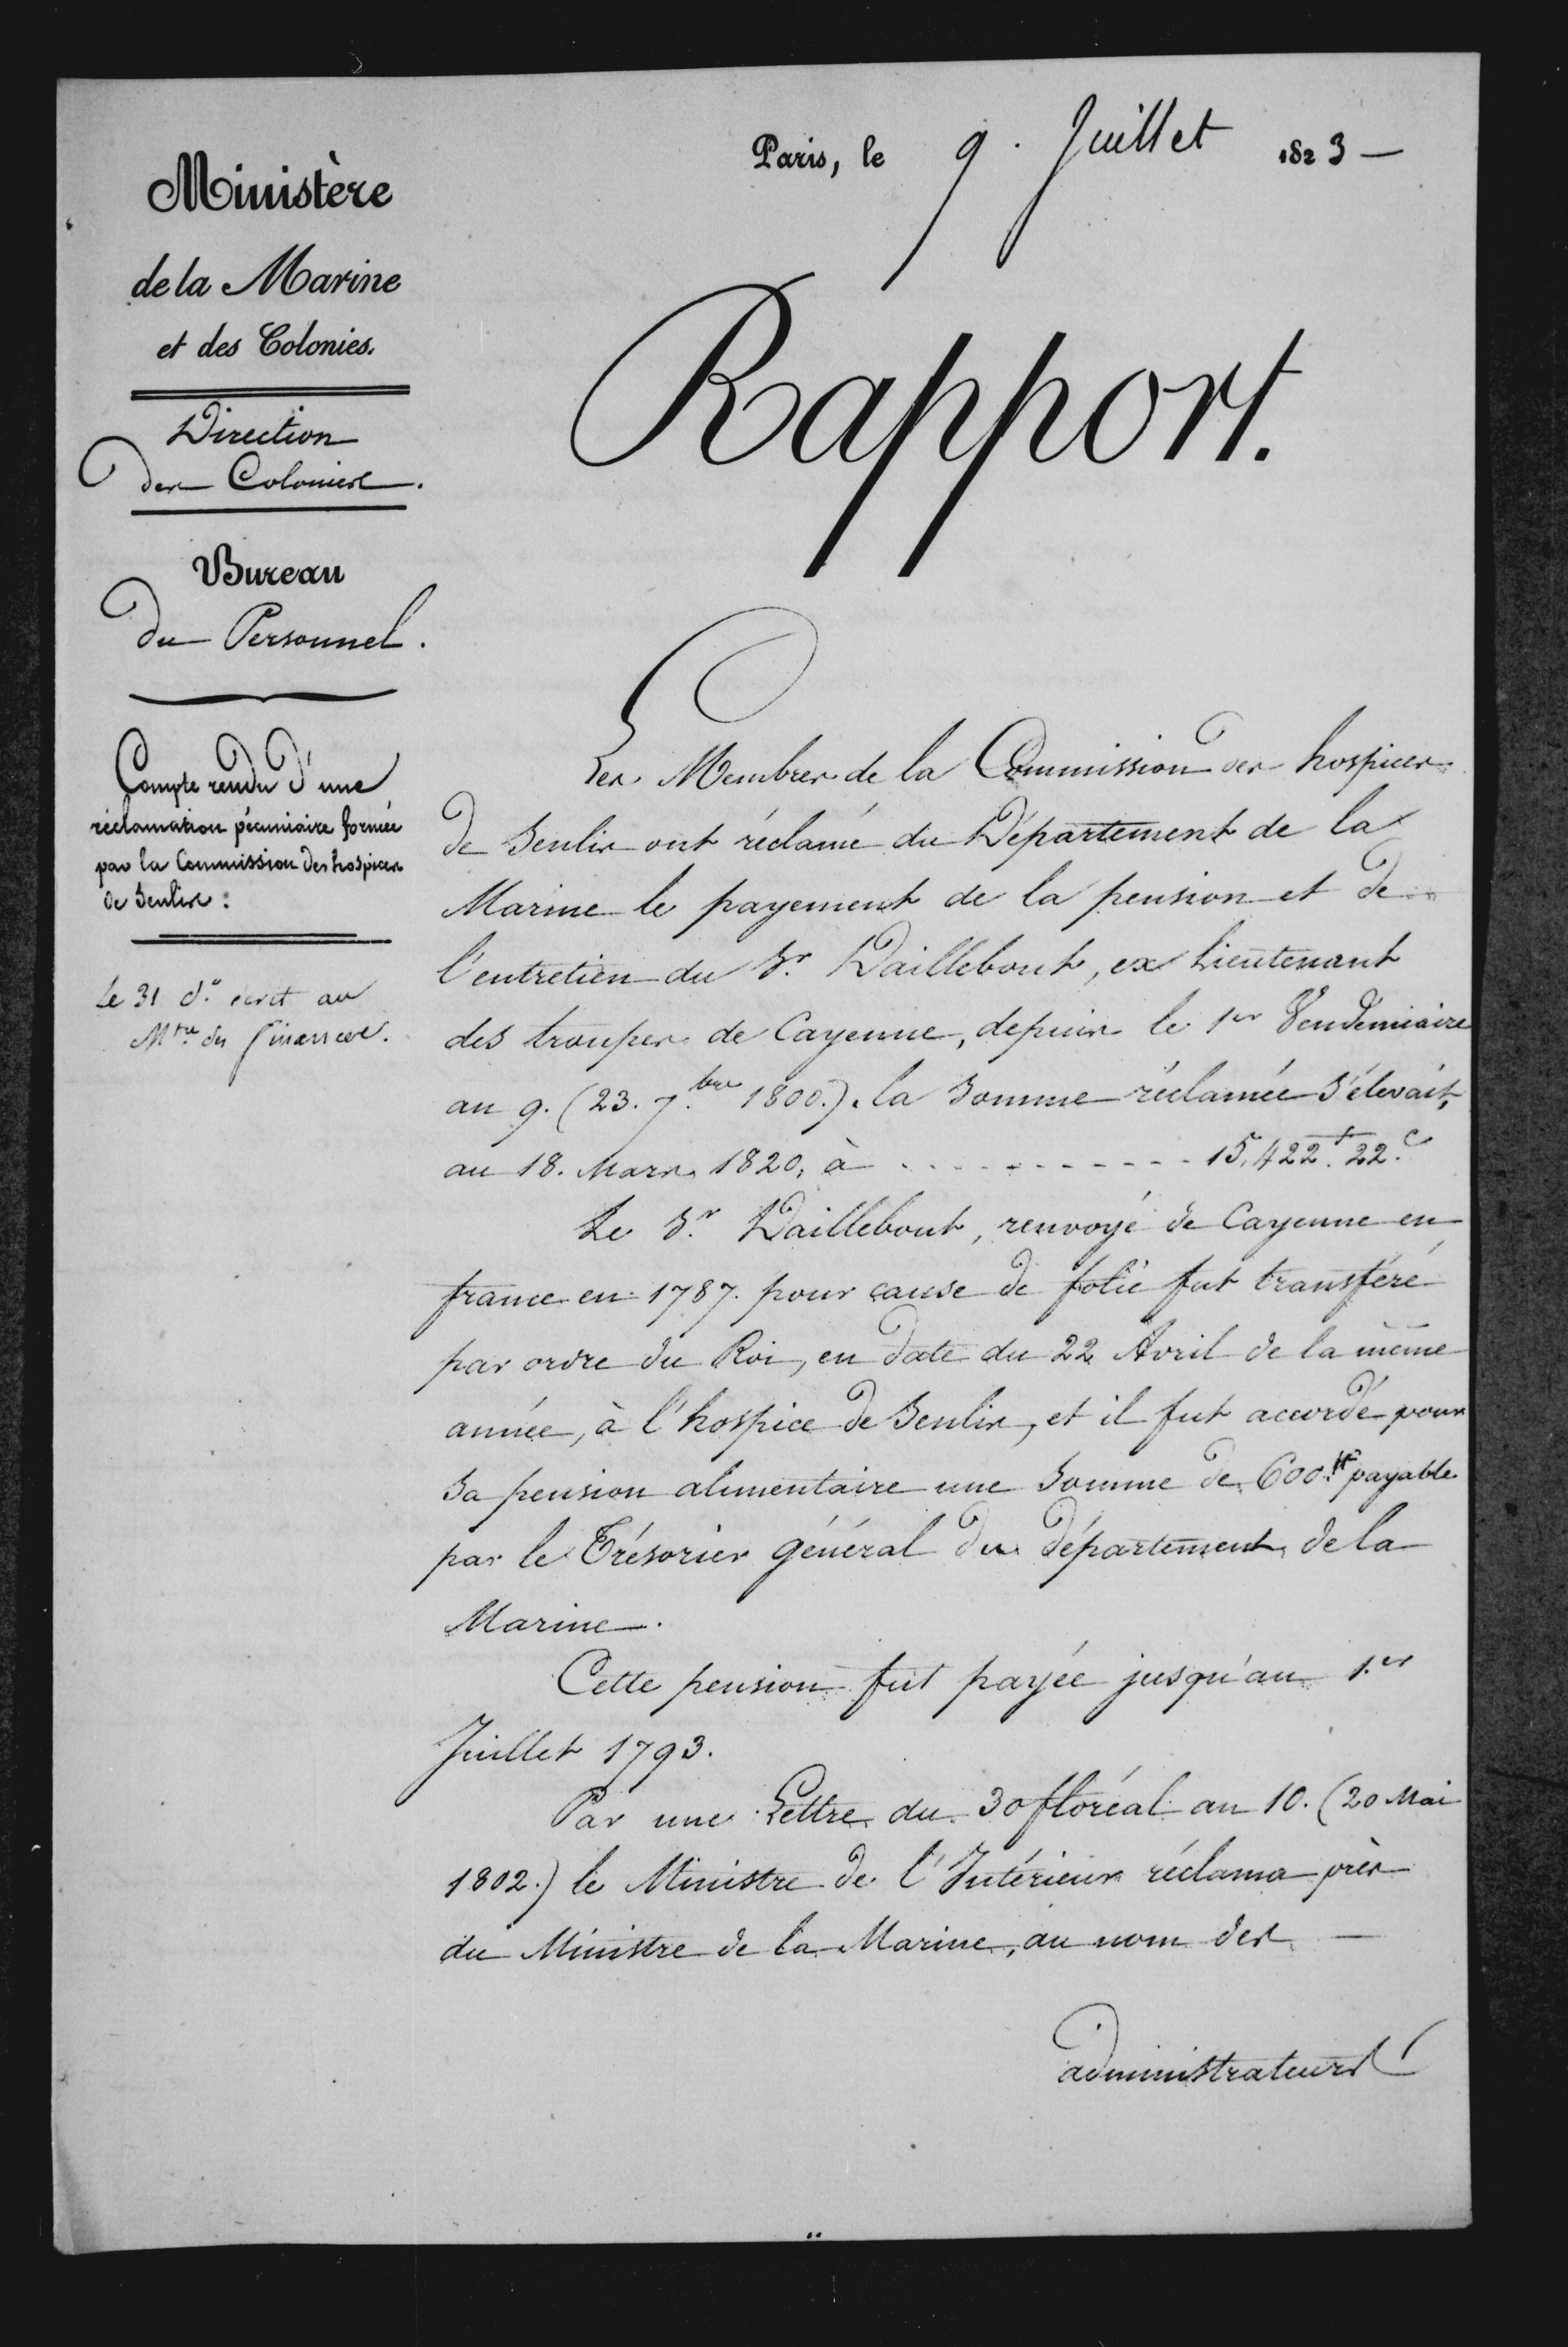 Paris, le 9. Juillet 1823 —
Ministère
de la Marine
et des Colonies.
Direction
des Colonies.
Bureau
du Personnel.
Compte rendu d'une
réclamation pécuniaire formée
par la Commission des hospices
de Senlis :
Le 31 d.º écrit au
M.tre des finances.
Rapport.
Les Membres de la Commission des hospices
de Senlis ont réclamé du Département de la
Marine le payement de la pension et de
l'entretien du S.r Daillebout, ex Lieutenant
des troupes de Cayenne, depuis le 1er Vendémiaire
an 9. (23. 7.bre 1800.). la Somme réclamée S'élevait,
au 18. Mars 1820, à . . . - - - - - - - 15,422f. 22.c
Le S.r Daillebout, renvoyé de Cayenne en
france en 1787. pour cause de folie fut transféré
par ordre du Roi, en date du 22 Avril de la même
année, à l'hospice de Senlis, et il fut accordé pour
Sa pension alimentaire une Somme de 600.tt payable
par le Trésorier général du département de la
Marine.
Cette pension fut payée jusqu'au 1.er
Juillet 1793.
Par une Lettre du 30 floréal an 10. (20 Mai
1802.) le Ministre de l'Intérieur réclama près
du Ministre de la Marine, au nom des —
administrateurs